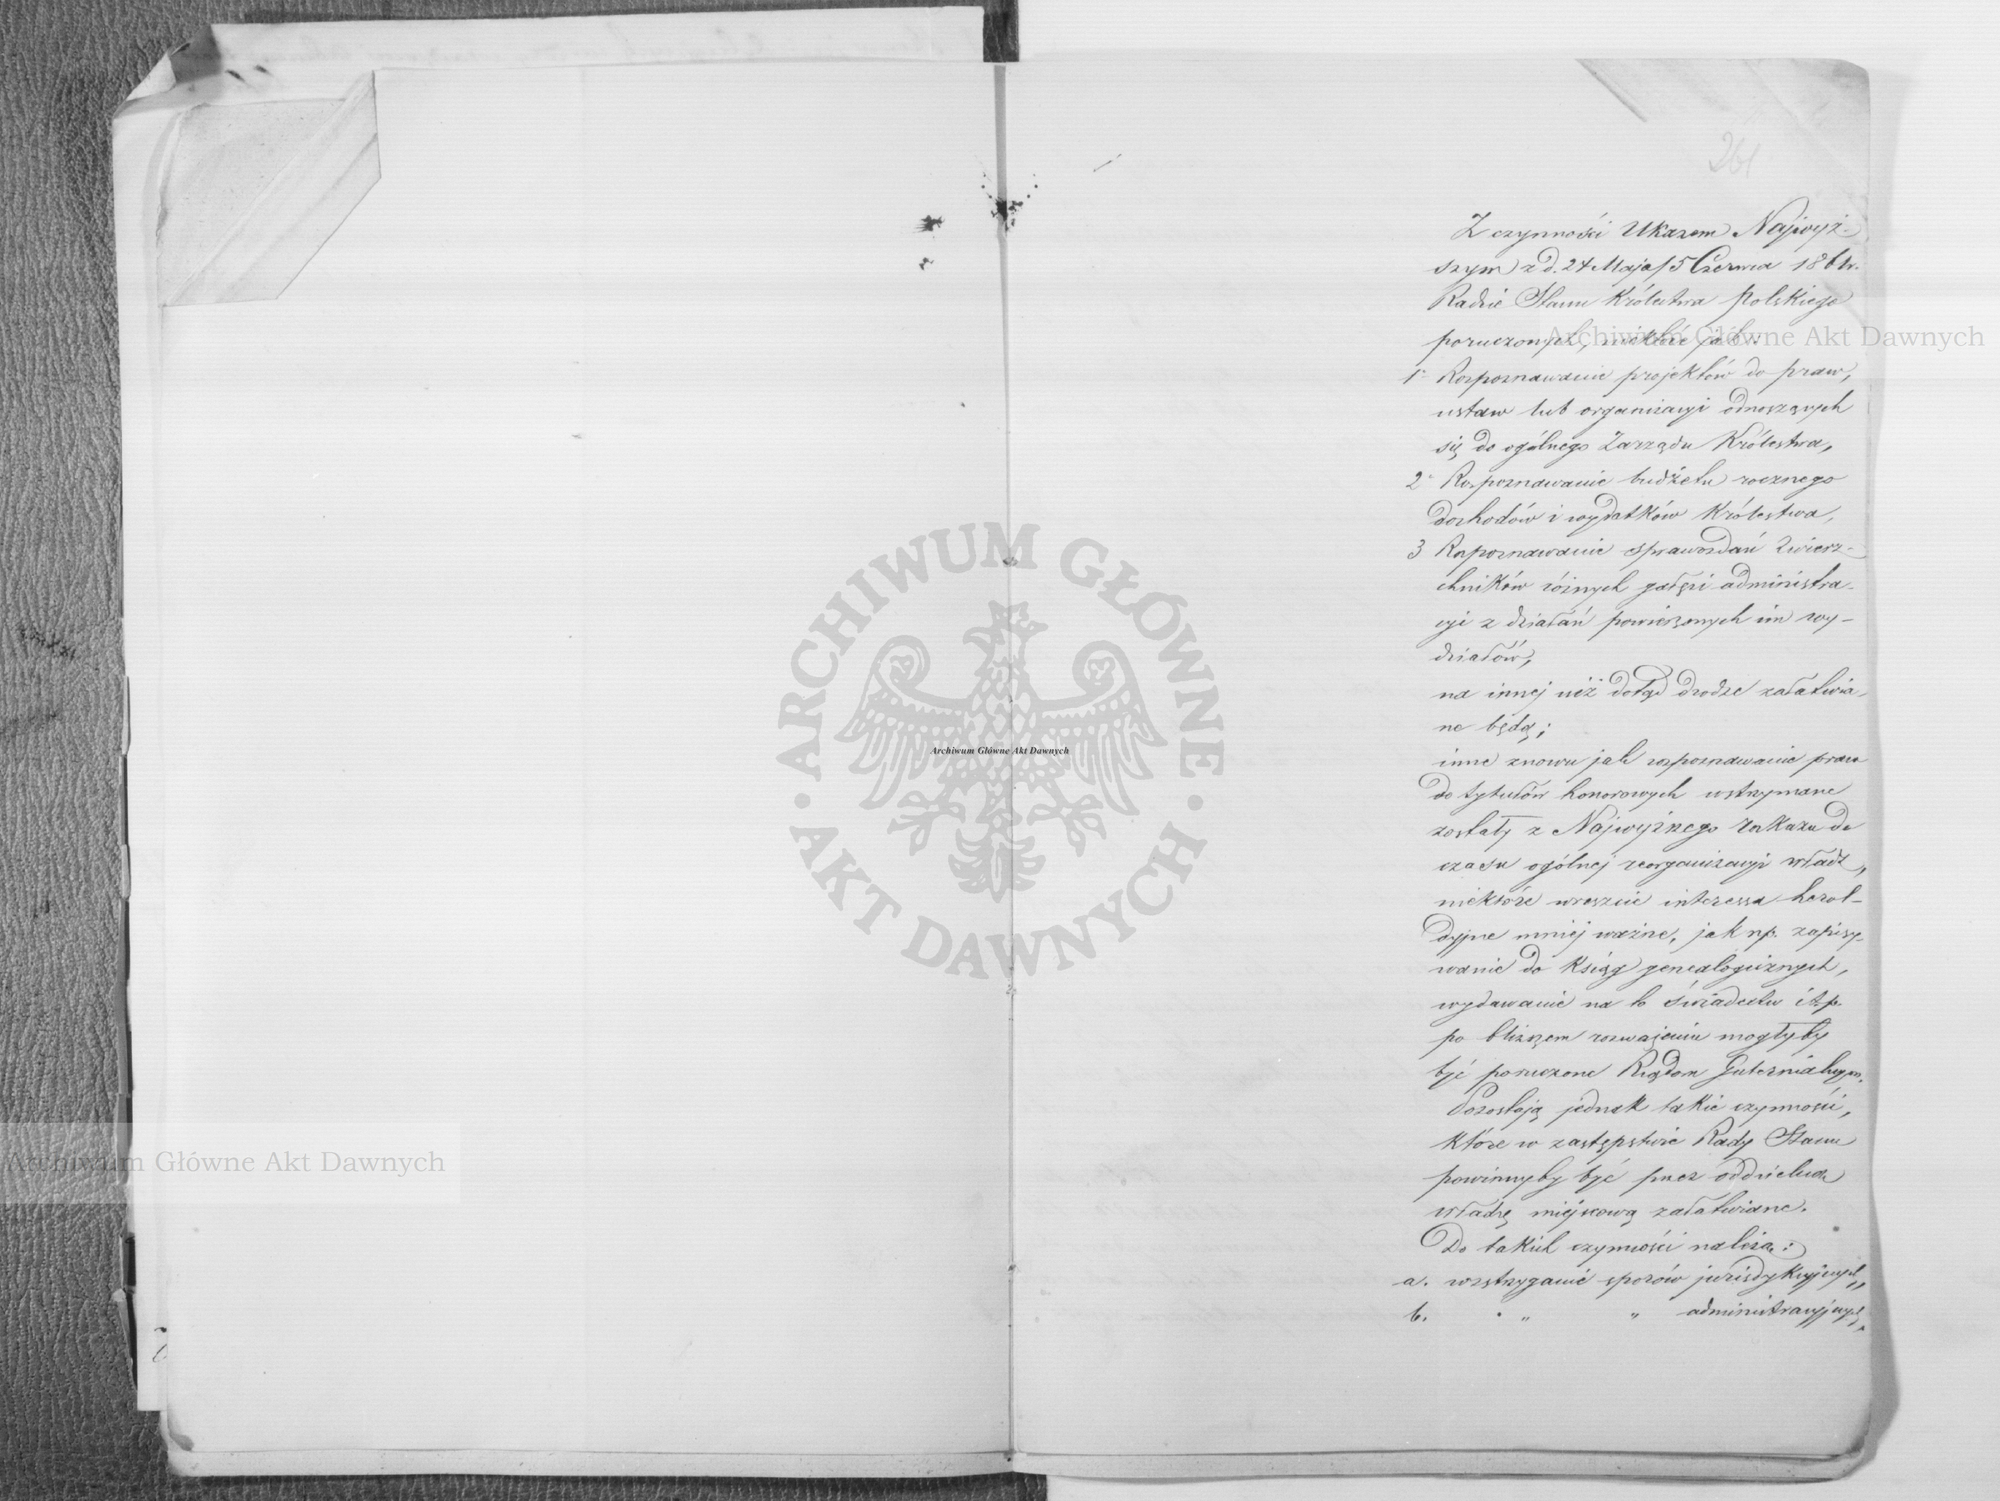 261
Z czynności Ukazem Najwyż-
szym z d. 24 Maja/5 Czerwca 1861 r.
Radzie Stanu Królestwa Polskiego
poruczonych, niektóre jako:
1° Rozpoznawanie projektów do praw,
ustaw lub organizacyi odnoszących
się do ogólnego Zarządu Królestwa,
2° Rozpoznawanie budżetu rocznego
dochodów i wydatków Królestwa,
3 Rozpoznawanie sprawozdań Zwierz-
chników różnych gałęzi administra-
cyi z działań powierzonych im wy-
działów,
na innej niż dotąd drodze załatwia-
ne będą;
inne znowu jak rozpoznawanie praw
do tytułów honorowych wstrzymane
zostały z Najwyższego rozkazu do
czasu ogólnej reorganizacyi władz,
niektóre wreszcie interessa herol-
dyjne mniej ważne, jak np. zapisy-
wanie do Ksiąg genealogicznych,
wydawanie na to świadectw itp.
po bliższem rozważeniu mogłyby
być poruczone Rządom Gubernialnym.
Pozostają jednak takie czynności,
które w zastępstwie Rady Stanu
powinnyby być przez oddzielną
władzę miejscową załatwiane.
Do takich czynności należą:
a. rozstrzyganie sporów jurisdykcyjnych,
b. " " " administracyjnych,
ARCHIWUM GŁÓWNE AKT DAWNYCH
Archiwum Główne Akt Dawnych
Archiwum Główne Akt Dawnych
Archiwum Główne Akt Dawnych